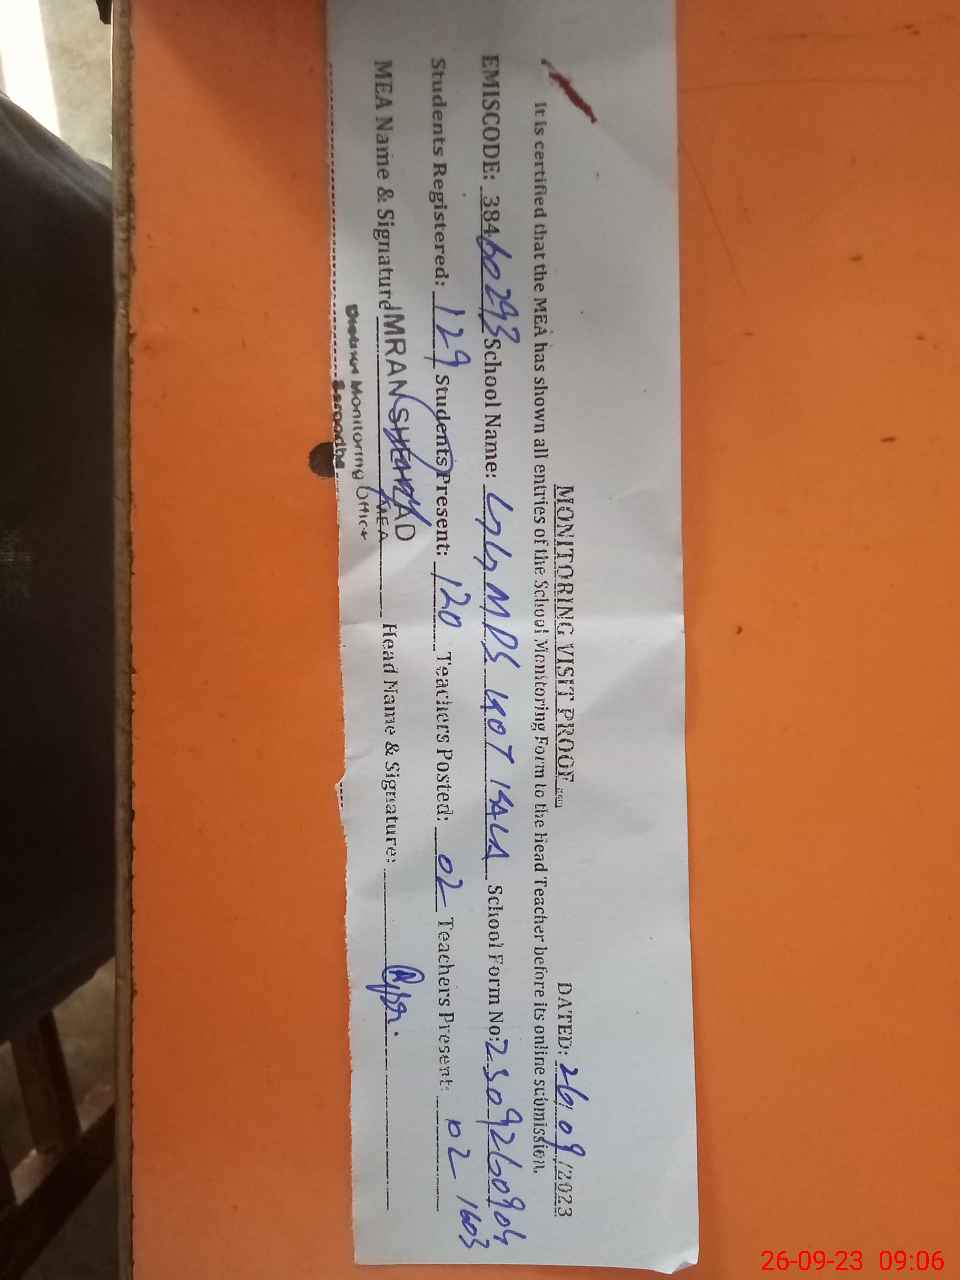 MONITORING VISIT PROOF DATED: 26/09/2023
It is certified that the MEA has shown all entries of the School Monitoring Form to the Head Teacher before its online submission.
EMISCODE: 38460293 School Name: GGMPS KOT ISALA School Form No: 2309260904
1603
Students Registered: 129 Students Present: 120 Teachers Posted: 02 Teachers Present: 02
MEA Name & Signature IMRAN SHEHZAD Head Name & Signature:
MEA
District Monitoring Office
Sargodha
26-09-23 09:06